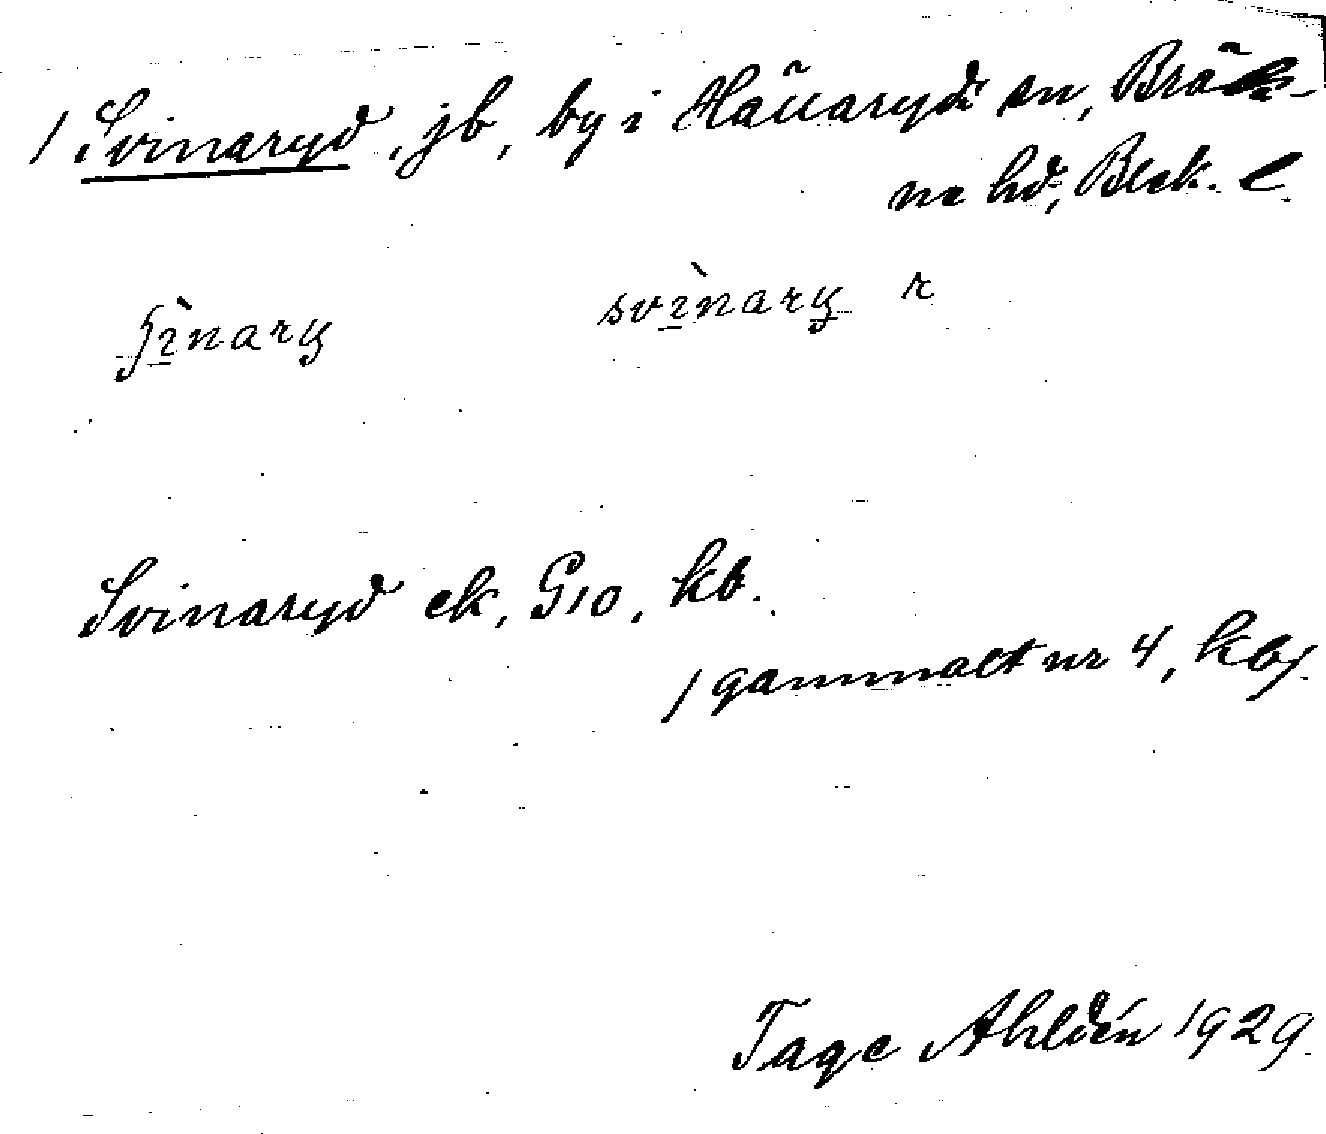 / Svinaryd, jb, by i Hällaryds sn, Bräk-
ne hd, Blek. l.
svinary r
Svinaryd ek, G10, kb.
/ gammalt nr 4, kb/.
Tage Ahldén 1929.